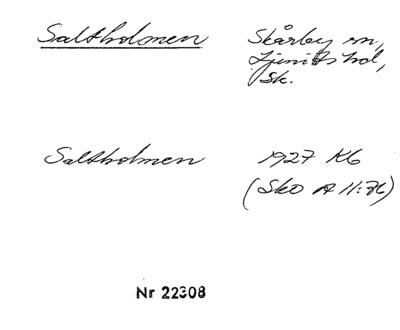 Saltholmen
Skårby sn,
Ljunits hd,
Sk.
Saltholmen
1927 K6
(SkO A 11:76)
Nr 22308